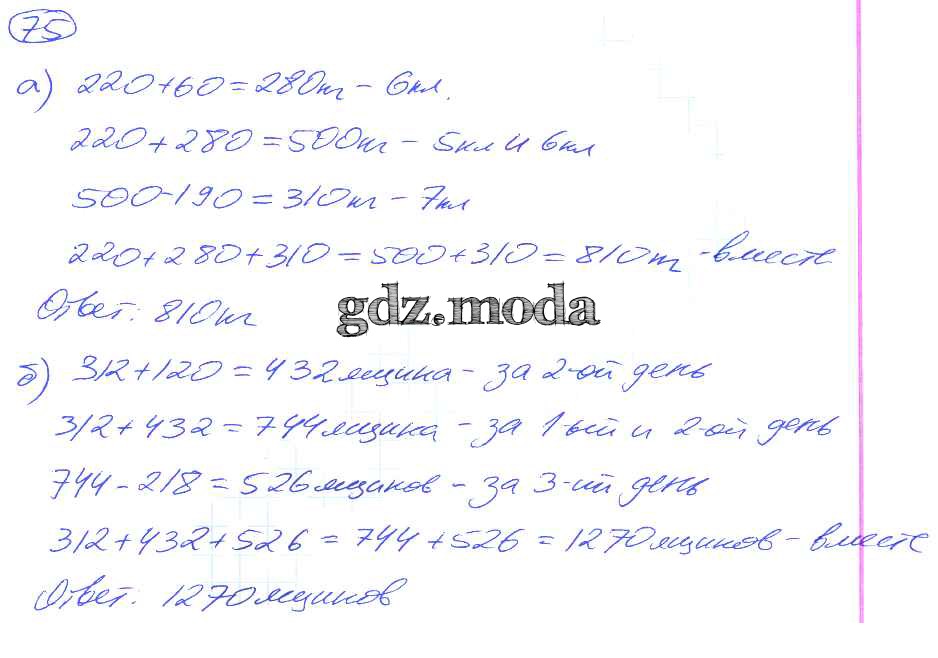 75
а) 220+60=280кг - 6кл.
220+280=500кг - 5кл и 6кл
500-190=310кг - 7кл
220+280+310=500+310=810кг - вместе
Ответ: 810кг
gdz.moda
б) 312+120=432ящика - за 2-ой день
312+432=744ящика - за 1-ый и 2-ой день
744-218=526ящиков - за 3-ий день
312+432+526=744+526=1270ящиков - вместе
Ответ: 1270ящиков